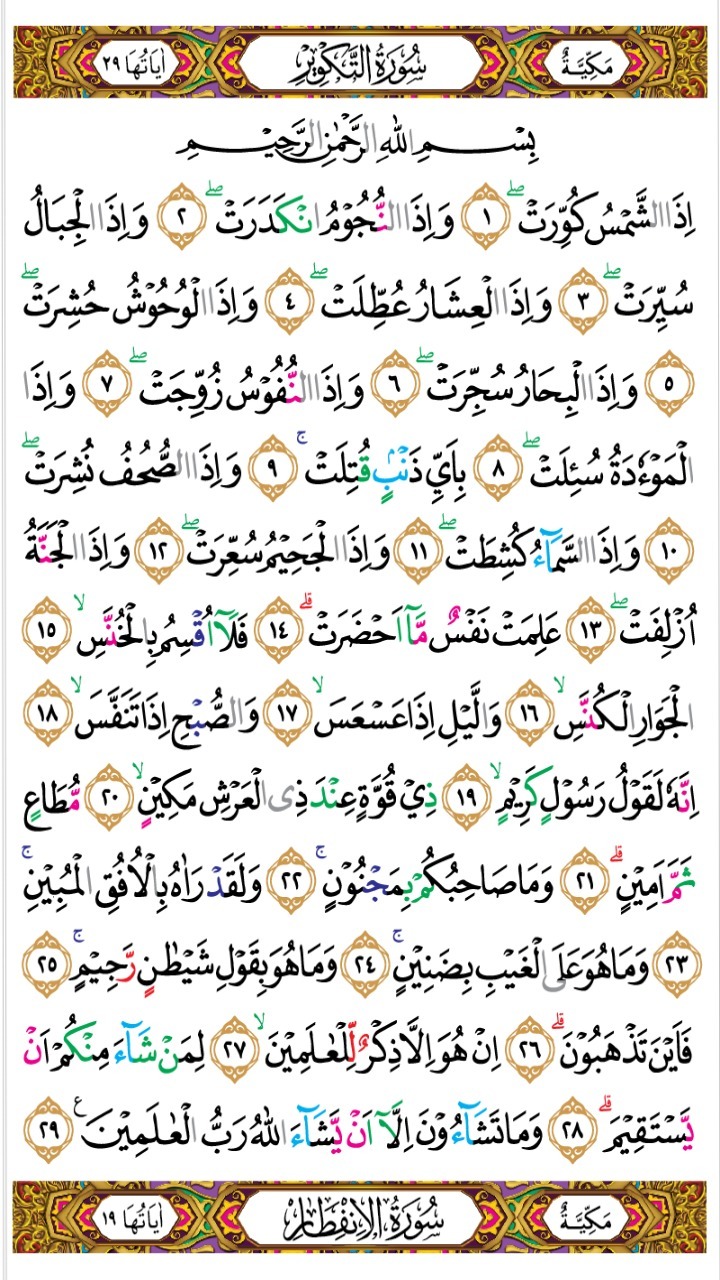 مَكِّيَّةٌ سُوْرَةُ التَّكْوِيْرِ اٰيَاتُهَا ٢٩
بِسْمِ اللّٰهِ الرَّحْمٰنِ الرَّحِيْمِ
اِذَا الشَّمْسُ كُوِّرَتْۖ ١ وَاِذَا النُّجُوْمُ انْكَدَرَتْۖ ٢ وَاِذَا الْجِبَالُ
سُيِّرَتْۖ ٣ وَاِذَا الْعِشَارُ عُطِّلَتْۖ ٤ وَاِذَا الْوُحُوْشُ حُشِرَتْۖ
٥ وَاِذَا الْبِحَارُ سُجِّرَتْۖ ٦ وَاِذَا النُّفُوْسُ زُوِّجَتْۖ ٧ وَاِذَا
الْمَوْءٗدَةُ سُىِٕلَتْۖ ٨ بِاَيِّ ذَنْۢبٍ قُتِلَتْۚ ٩ وَاِذَا الصُّحُفُ نُشِرَتْۖ
١٠ وَاِذَا السَّمَاۤءُ كُشِطَتْۖ ١١ وَاِذَا الْجَحِيْمُ سُعِّرَتْۖ ١٢ وَاِذَا الْجَنَّةُ
اُزْلِفَتْۖ ١٣ عَلِمَتْ نَفْسٌ مَّآ اَحْضَرَتْۗ ١٤ فَلَآ اُقْسِمُ بِالْخُنَّسِۙ ١٥
الْجَوَارِ الْكُنَّسِۙ ١٦ وَالَّيْلِ اِذَا عَسْعَسَۙ ١٧ وَالصُّبْحِ اِذَا تَنَفَّسَۙ ١٨
اِنَّهٗ لَقَوْلُ رَسُوْلٍ كَرِيْمٍۙ ١٩ ذِيْ قُوَّةٍ عِنْدَ ذِى الْعَرْشِ مَكِيْنٍۙ ٢٠ مُّطَاعٍ
ثَمَّ اَمِيْنٍۗ ٢١ وَمَا صَاحِبُكُمْ بِمَجْنُوْنٍۚ ٢٢ وَلَقَدْ رَاٰهُ بِالْاُفُقِ الْمُبِيْنِۚ
٢٣ وَمَا هُوَ عَلَى الْغَيْبِ بِضَنِيْنٍۚ ٢٤ وَمَا هُوَ بِقَوْلِ شَيْطٰنٍ رَّجِيْمٍۚ ٢٥
فَاَيْنَ تَذْهَبُوْنَۗ ٢٦ اِنْ هُوَ اِلَّا ذِكْرٌ لِّلْعٰلَمِيْنَۙ ٢٧ لِمَنْ شَاۤءَ مِنْكُمْ اَنْ
يَّسْتَقِيْمَۗ ٢٨ وَمَا تَشَاۤءُوْنَ اِلَّآ اَنْ يَّشَاۤءَ اللّٰهُ رَبُّ الْعٰلَمِيْنَ ࣖ ٢٩
مَكِّيَّةٌ سُوْرَةُ الْاِنْفِطَارِ اٰيَاتُهَا ١٩